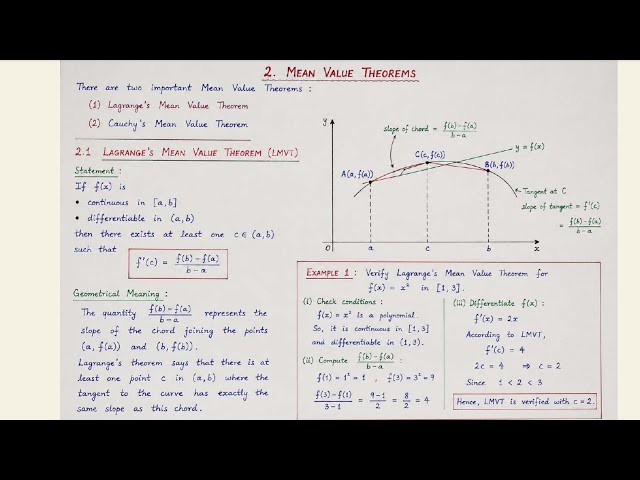 2. MEAN VALUE THEOREMS
There are two important Mean Value Theorems :
(1) Lagrange's Mean Value Theorem
(2) Cauchy's Mean Value Theorem
2.1 LAGRANGE'S MEAN VALUE THEOREM (LMVT)
Statement :
If f(x) is
• continuous in [a, b]
• differentiable in (a, b)
then there exists at least one c ∈ (a, b)
such that
f'(c) = f(b) − f(a) / b − a
Geometrical Meaning :
The quantity f(b) − f(a) / b − a represents the
slope of the chord joining the points
(a, f(a)) and (b, f(b)).
Lagrange's theorem says that there is at
least one point c in (a, b) where the
tangent to the curve has exactly the
same slope as this chord.
y
slope of chord = f(b) − f(a) / b − a
y = f(x)
A(a, f(a))
C(c, f(c))
B(b, f(b))
Tangent at C
slope of tangent = f'(c)
= f(b) − f(a) / b − a
0 a c b x
EXAMPLE 1 : Verify Lagrange's Mean Value Theorem for
f(x) = x² in [1, 3].
(i) Check conditions :
f(x) = x² is a polynomial.
So, it is continuous in [1, 3]
and differentiable in (1, 3).
(ii) Compute f(b) − f(a) / b − a
f(1) = 1² = 1 , f(3) = 3² = 9
f(3) − f(1) / 3 − 1 = 9 − 1 / 2 = 8 / 2 = 4
(iii) Differentiate f(x) :
f'(x) = 2x
According to LMVT,
f'(c) = 4
2c = 4 ⇒ c = 2
Since 1 < 2 < 3
Hence, LMVT is verified with c = 2.